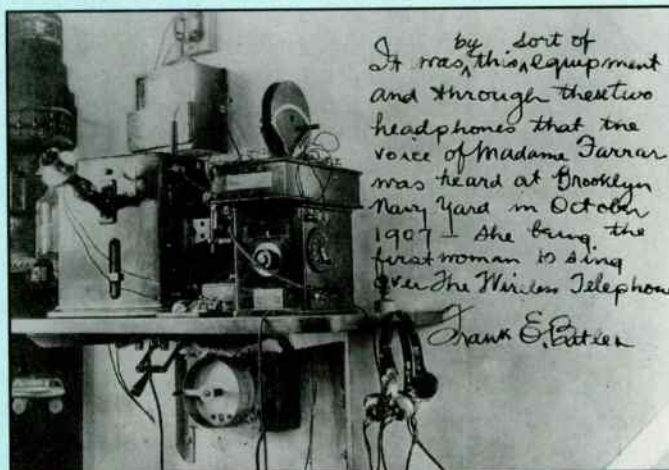 It was ^by this ^sort of equipment
and through these two
headphones that the
voice of Madame Farrar
was heard at Brooklyn
Navy Yard in October
1907 – she being the
first woman to sing
over The Wireless Telephone
Frank E. Butler